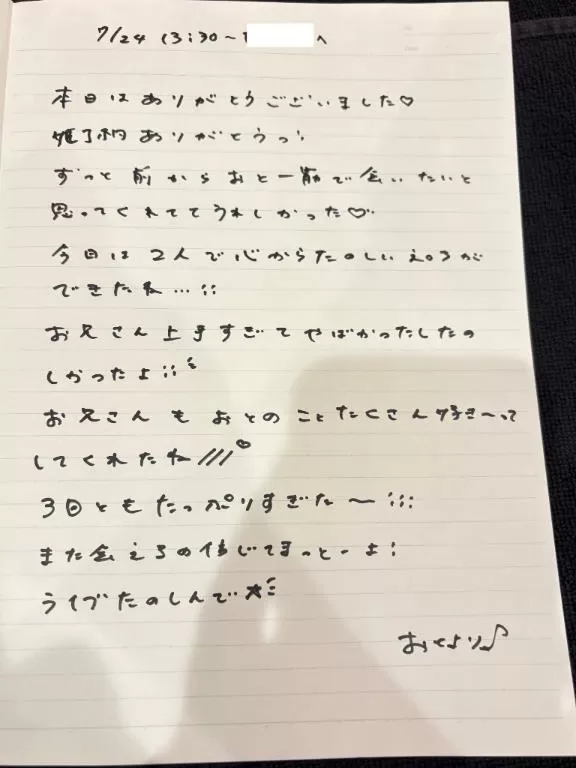 7/24 13:30~ へ
本日はありがとうございました♡
ありがとうっ!!
ずっと前からおと一筋で会いたいと
思っててくれててうれしかった♡
今日は2人で心からたのしい えっちが
できたね…!!
お兄さん上手すぎてやばかったしたの
しかったよ!!
お兄さんもおとのことたくさん好き〜って
してくれたね///♡
3回ともたっぷりすぎた〜!!!
また会えるの信じてまっとーよ!
ライブたのしんで★!!
おとより♪